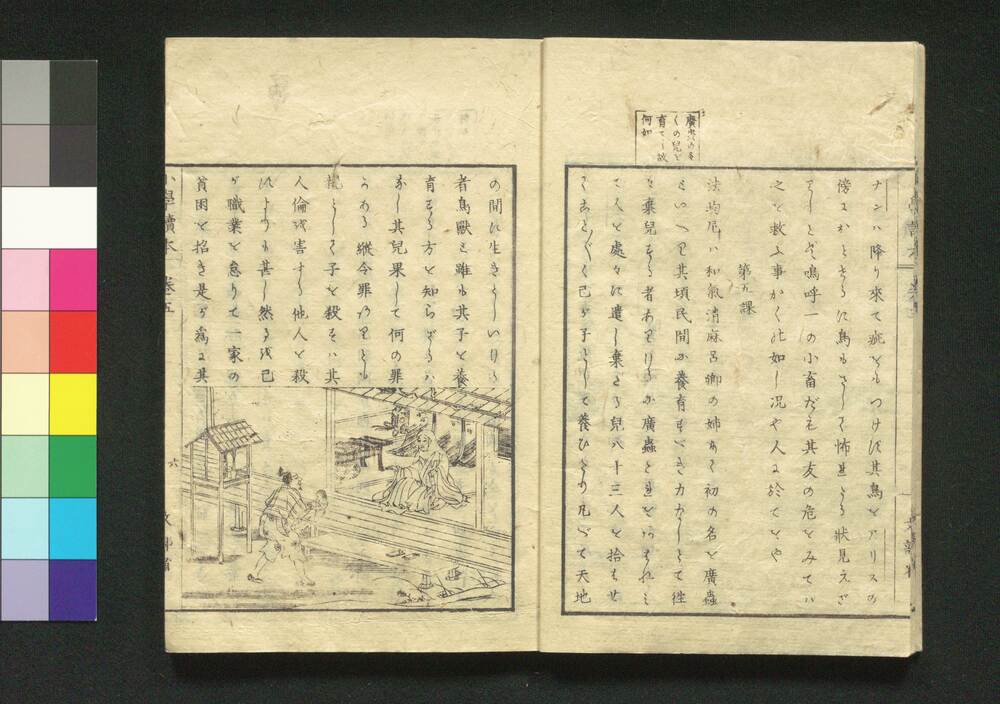 ナンハ降り來て疵をもつけず其鳥をアリスの
傍におきさるに鳥もさして怖たる狀見えざ
りしとぞ嗚呼一の小畜だも其友の危をみてハ
之を救ふ事かくの如し況や人に於てをや
第五課
法均尼ハ和氣清麻呂卿の姉にて初の名を廣蟲
といへり其頃民間に養育すべき力なしとて徃
々棄兒する者ありけるが廣蟲これをあはれみ
て人を處々に遣し棄たる兒八十三人を拾はせ
てことごとく己が子として養ひたり凡べて天地
廣蟲の多
くの兒を
育てし故
何如
の間に生きとしいける
者鳥獸と雖も其子を養
育する方を知らざるハ
なし其兒果して何の罪
かある縱令罪ありとも
親として子を殺すハ其
人倫を害する他人を殺
すよりも甚し然るを己
が職業を怠りて一家の
貧困を招き是が爲に其
小學讀本 卷五
六
文部省